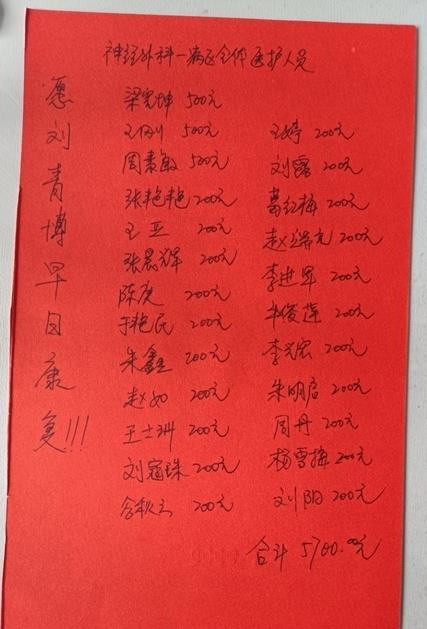 神经外科一病区全体医护人员
愿刘青博早日康复!!!
梁宪坤 500元
王刚 500元
周素敏 500元
张艳艳 200元
王亚 200元
张晨辉 200元
陈庚 200元
于艳民 200元
朱鑫 200元
赵如 200元
王士洲 200元
刘寇珠 200元
200元
王婷 200元
刘露 200元
葛红梅 200元
赵瑞光 200元
李进军 200元
牛俊莲 200元
李兴宏 200元
朱明启 200元
周丹 200元
杨雪梅 200元
刘阳 200元
合计 5700.00元